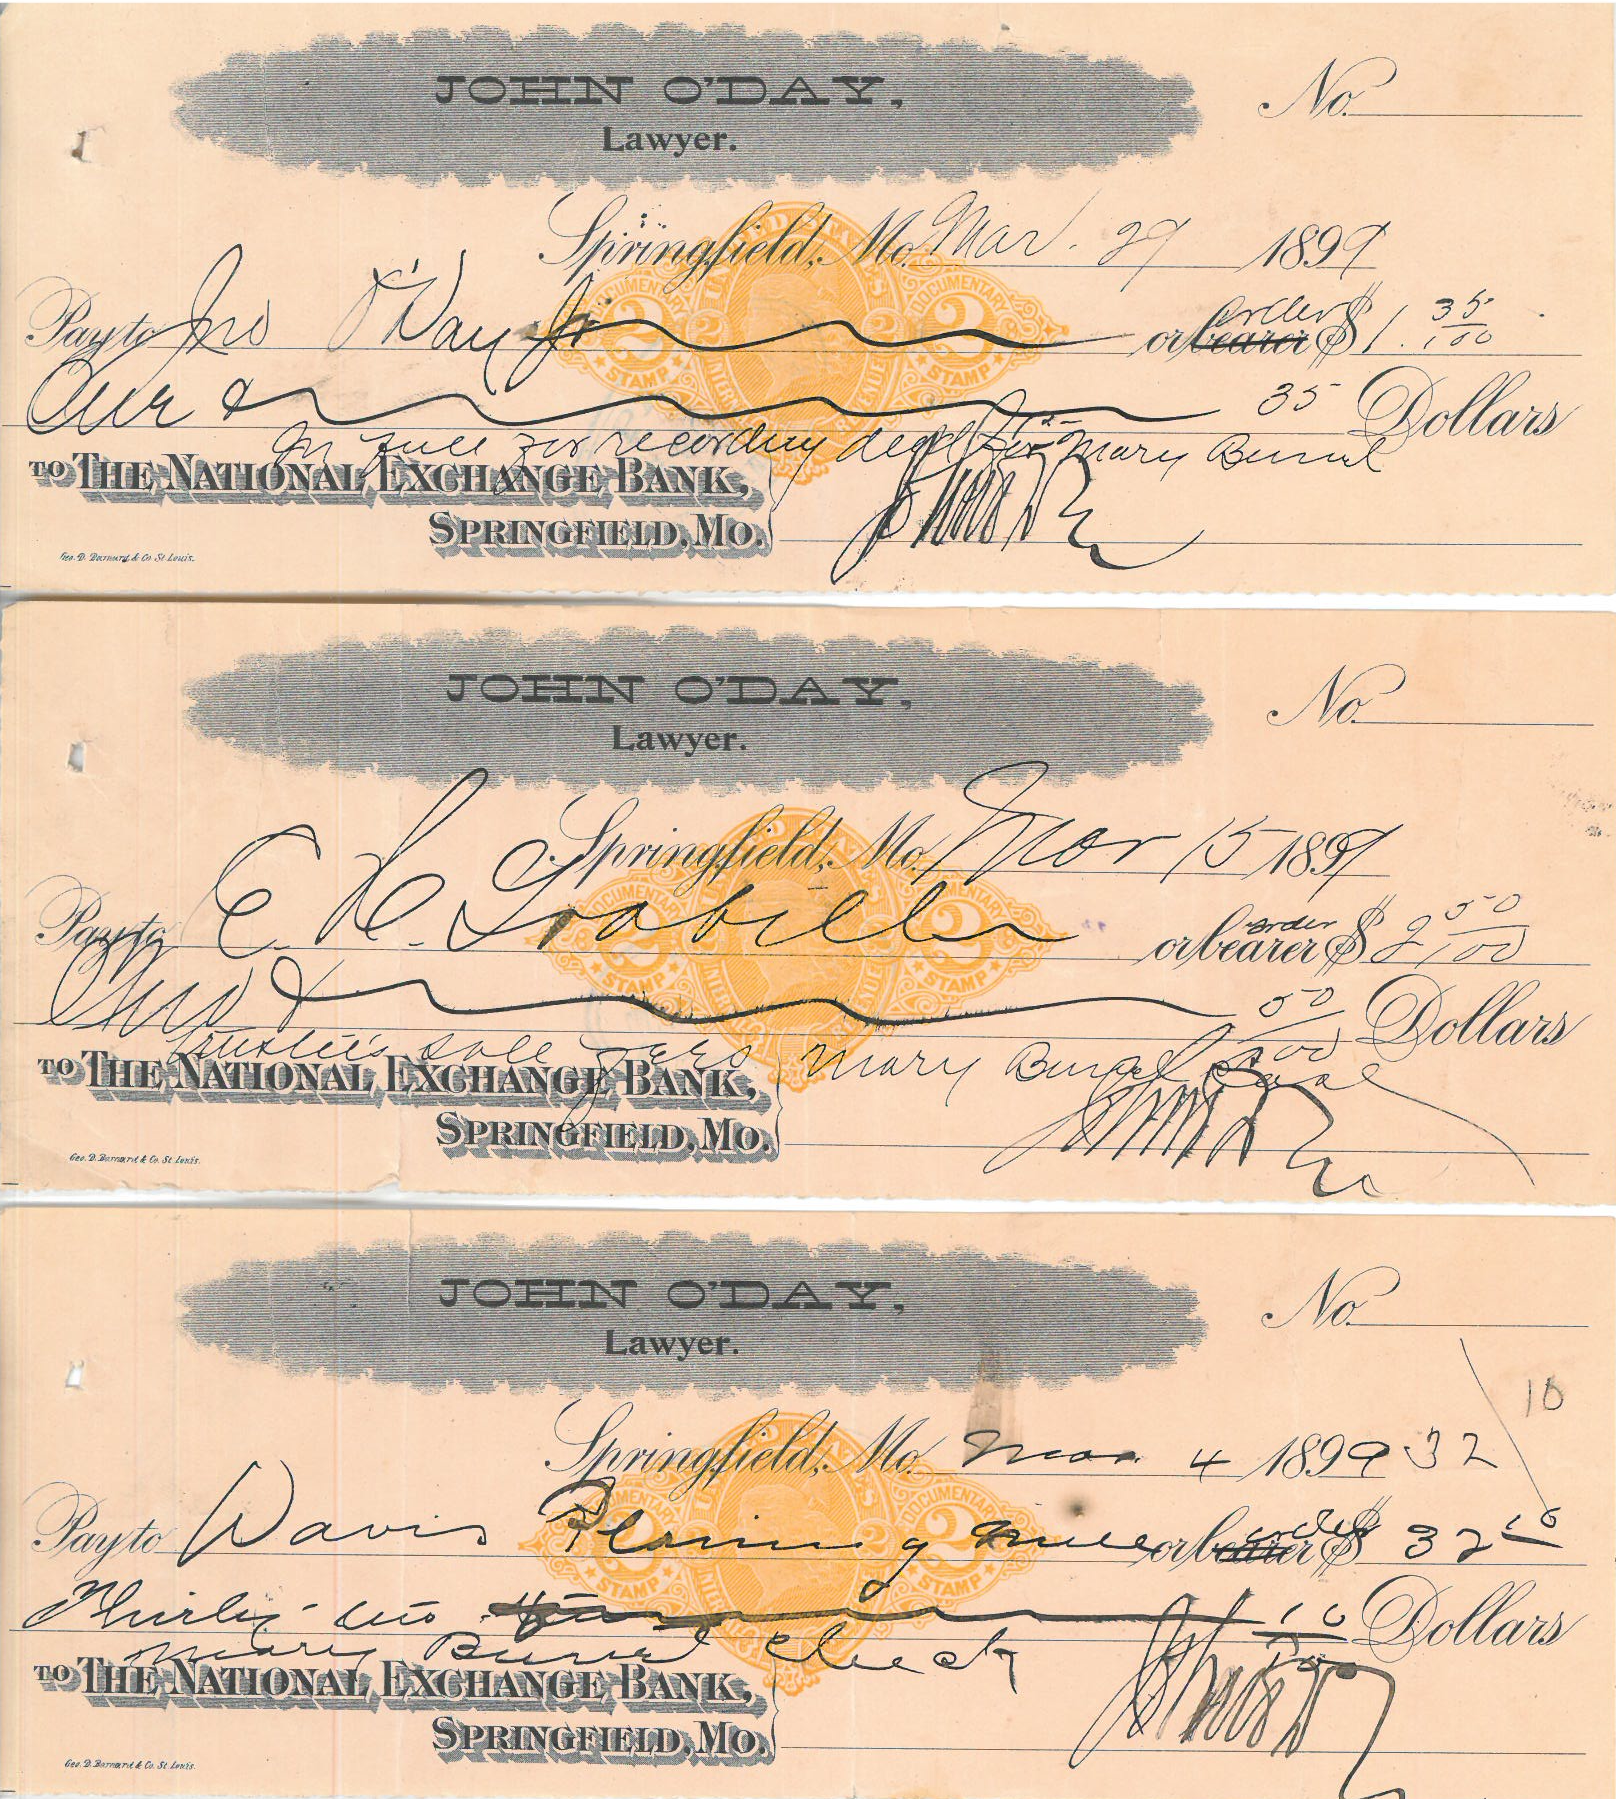 JOHN O'DAY,
Lawyer.
No.
Springfield, Mo. Mar. 29 1899
Pay to Jno O'Day Jr or bearer order $ 1. 35/100
One & 35 Dollars
In full for recording deed for Mary Burul
TO THE NATIONAL EXCHANGE BANK,
SPRINGFIELD, MO.
Geo. D. Barnard & Co. St. Louis.
UNITED STATES INTERNAL REVENUE
DOCUMENTARY 2 STAMP
JOHN O'DAY,
Lawyer.
No.
Springfield, Mo. Mar 15 1899
Pay to E. L. Grabill or bearer order $ 2 50/100
& 50/100 Dollars
Trustee's sale fees Mary
TO THE NATIONAL EXCHANGE BANK,
SPRINGFIELD, MO.
Geo. D. Barnard & Co. St. Louis.
DOCUMENTARY 2 STAMP
JOHN O'DAY,
Lawyer.
No.
10
Springfield, Mo. Mar 4 1899 32
Pay to Davis Planing Mill or bearer order $ 32 10
Thirty two 10/100 Dollars
Mary check
TO THE NATIONAL EXCHANGE BANK,
SPRINGFIELD, MO.
Geo. D. Barnard & Co. St. Louis.
DOCUMENTARY 2 STAMP